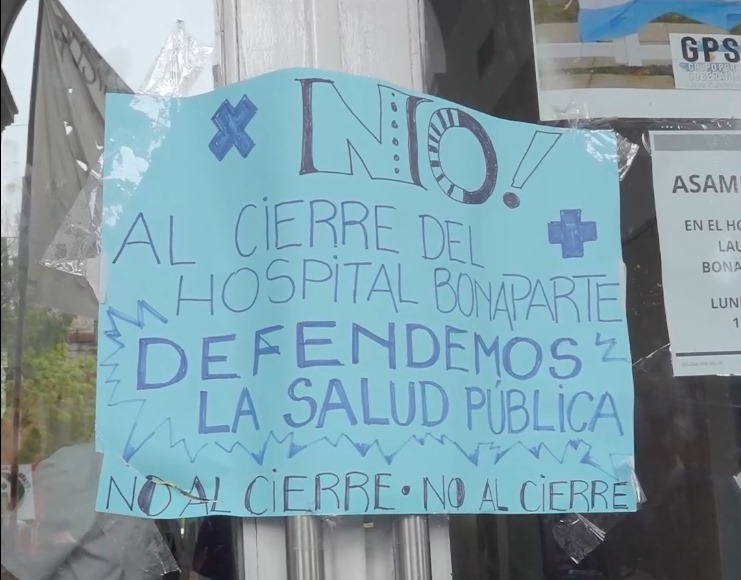 NO!
AL CIERRE DEL
HOSPITAL BONAPARTE
DEFENDEMOS
LA SALUD PÚBLICA
NO AL CIERRE • NO AL CIERRE
GPS
ASAM
EN EL HO
LAU
BONA
LUN
1